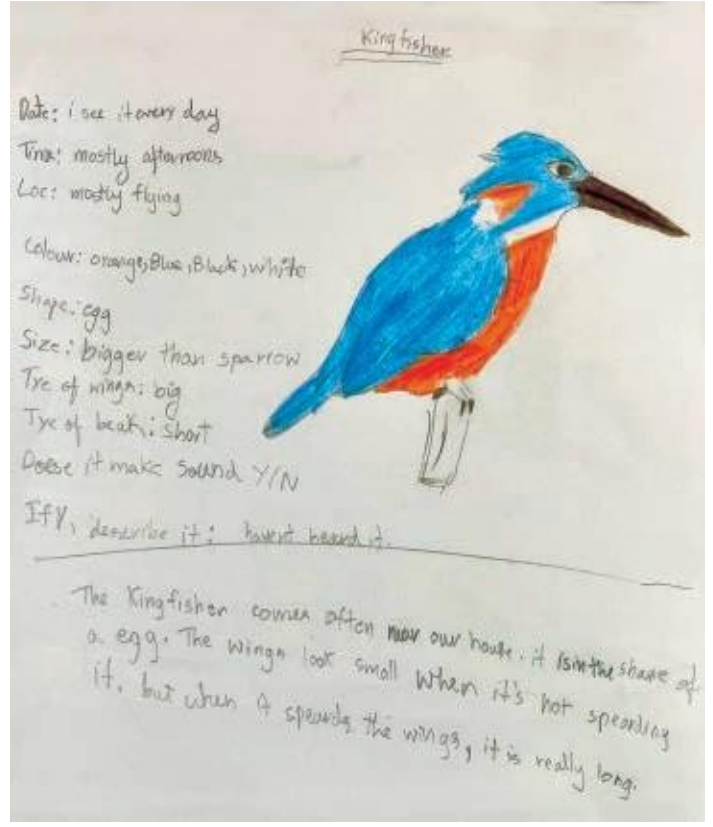 Kingfisher
Date: i see it every day
Time: mostly afternoons
Loc: mostly flying
Colour: orange, Blue, Black, white
Shape: egg
Size: bigger than sparrow
Tye of wings: big
Tye of beak: short
Doese it make sound Y/N
If Y, describe it: havent heard it.
The Kingfisher comes often near our house. it is in the shape of
a egg. The wings look small when it's not spearding
it, but when it speards the wings, it is really long.